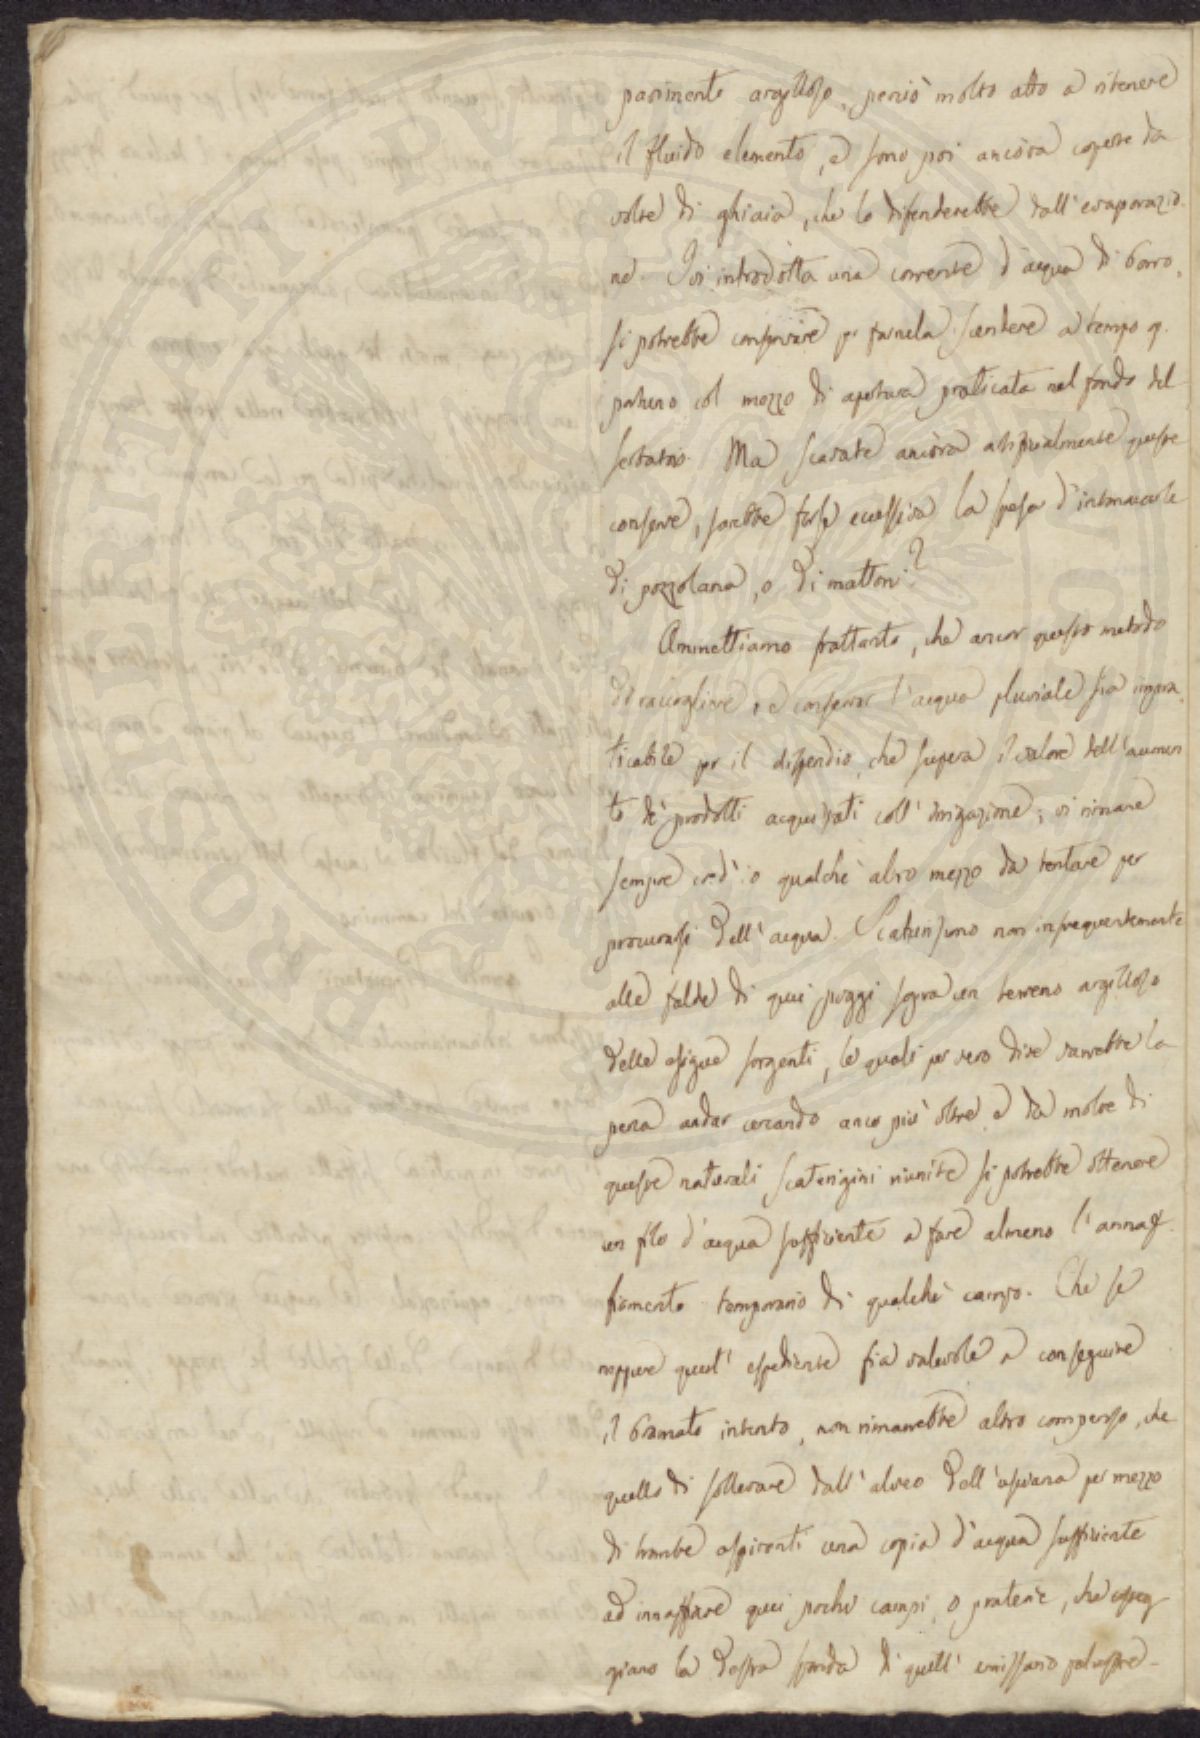 pavimento argilloso, perciò molto atto a ritenere
il fluido elemento, e sono poi ancòra coperte da
coltre di ghiaia, che lo difenderebbe dall'evaporazio-
ne. Ivi introdotta una corrente d'acqua di borro,
si potrebbe conservare p. farnela scendere a tempo op-
portuno col mezzo di apertura praticata nel fondo del
serbatoio. Ma scavate ancòra artificialmente queste
conserve, sarebbe forse eccessiva la spesa d'intonacarle
di pozzolana, o di mattoni?
Ammettiamo frattanto, che ancor questo metodo
di raccogliere, e conservar l'acqua pluviale sia impra-
ticabile per il dispendio, che supera il valore dell'aumen-
to de' prodotti acquistati coll'irrigazione; vi rimane
sempre cred'io qualche altro mezzo da tentare per
procurarsi dell'acqua. Scaturiscono non infrequentemente
alle falde di quei poggi sopra un terreno argilloso
delle esigue sorgenti, le quali per vero dire varrebbe la
pena andar cercando anco più oltre, e da molte di
queste naturali scaturigini riunite si potrebbe ottenere
un filo d'acqua sufficiente a fare almeno l'annaf-
fiamento temporario di qualche campo. Che se
neppure quest'espediente fia valevole a conseguire
il bramato intento, non rimarrebbe altro compenso, che
quello di sollevare dall'alveo dell'Usciana per mezzo
di trombe aspiranti una copia d'acqua sufficiente
ad innaffiare quei pochi campi, o praterie, che
giano la destra sponda di quell'emissario palustre.